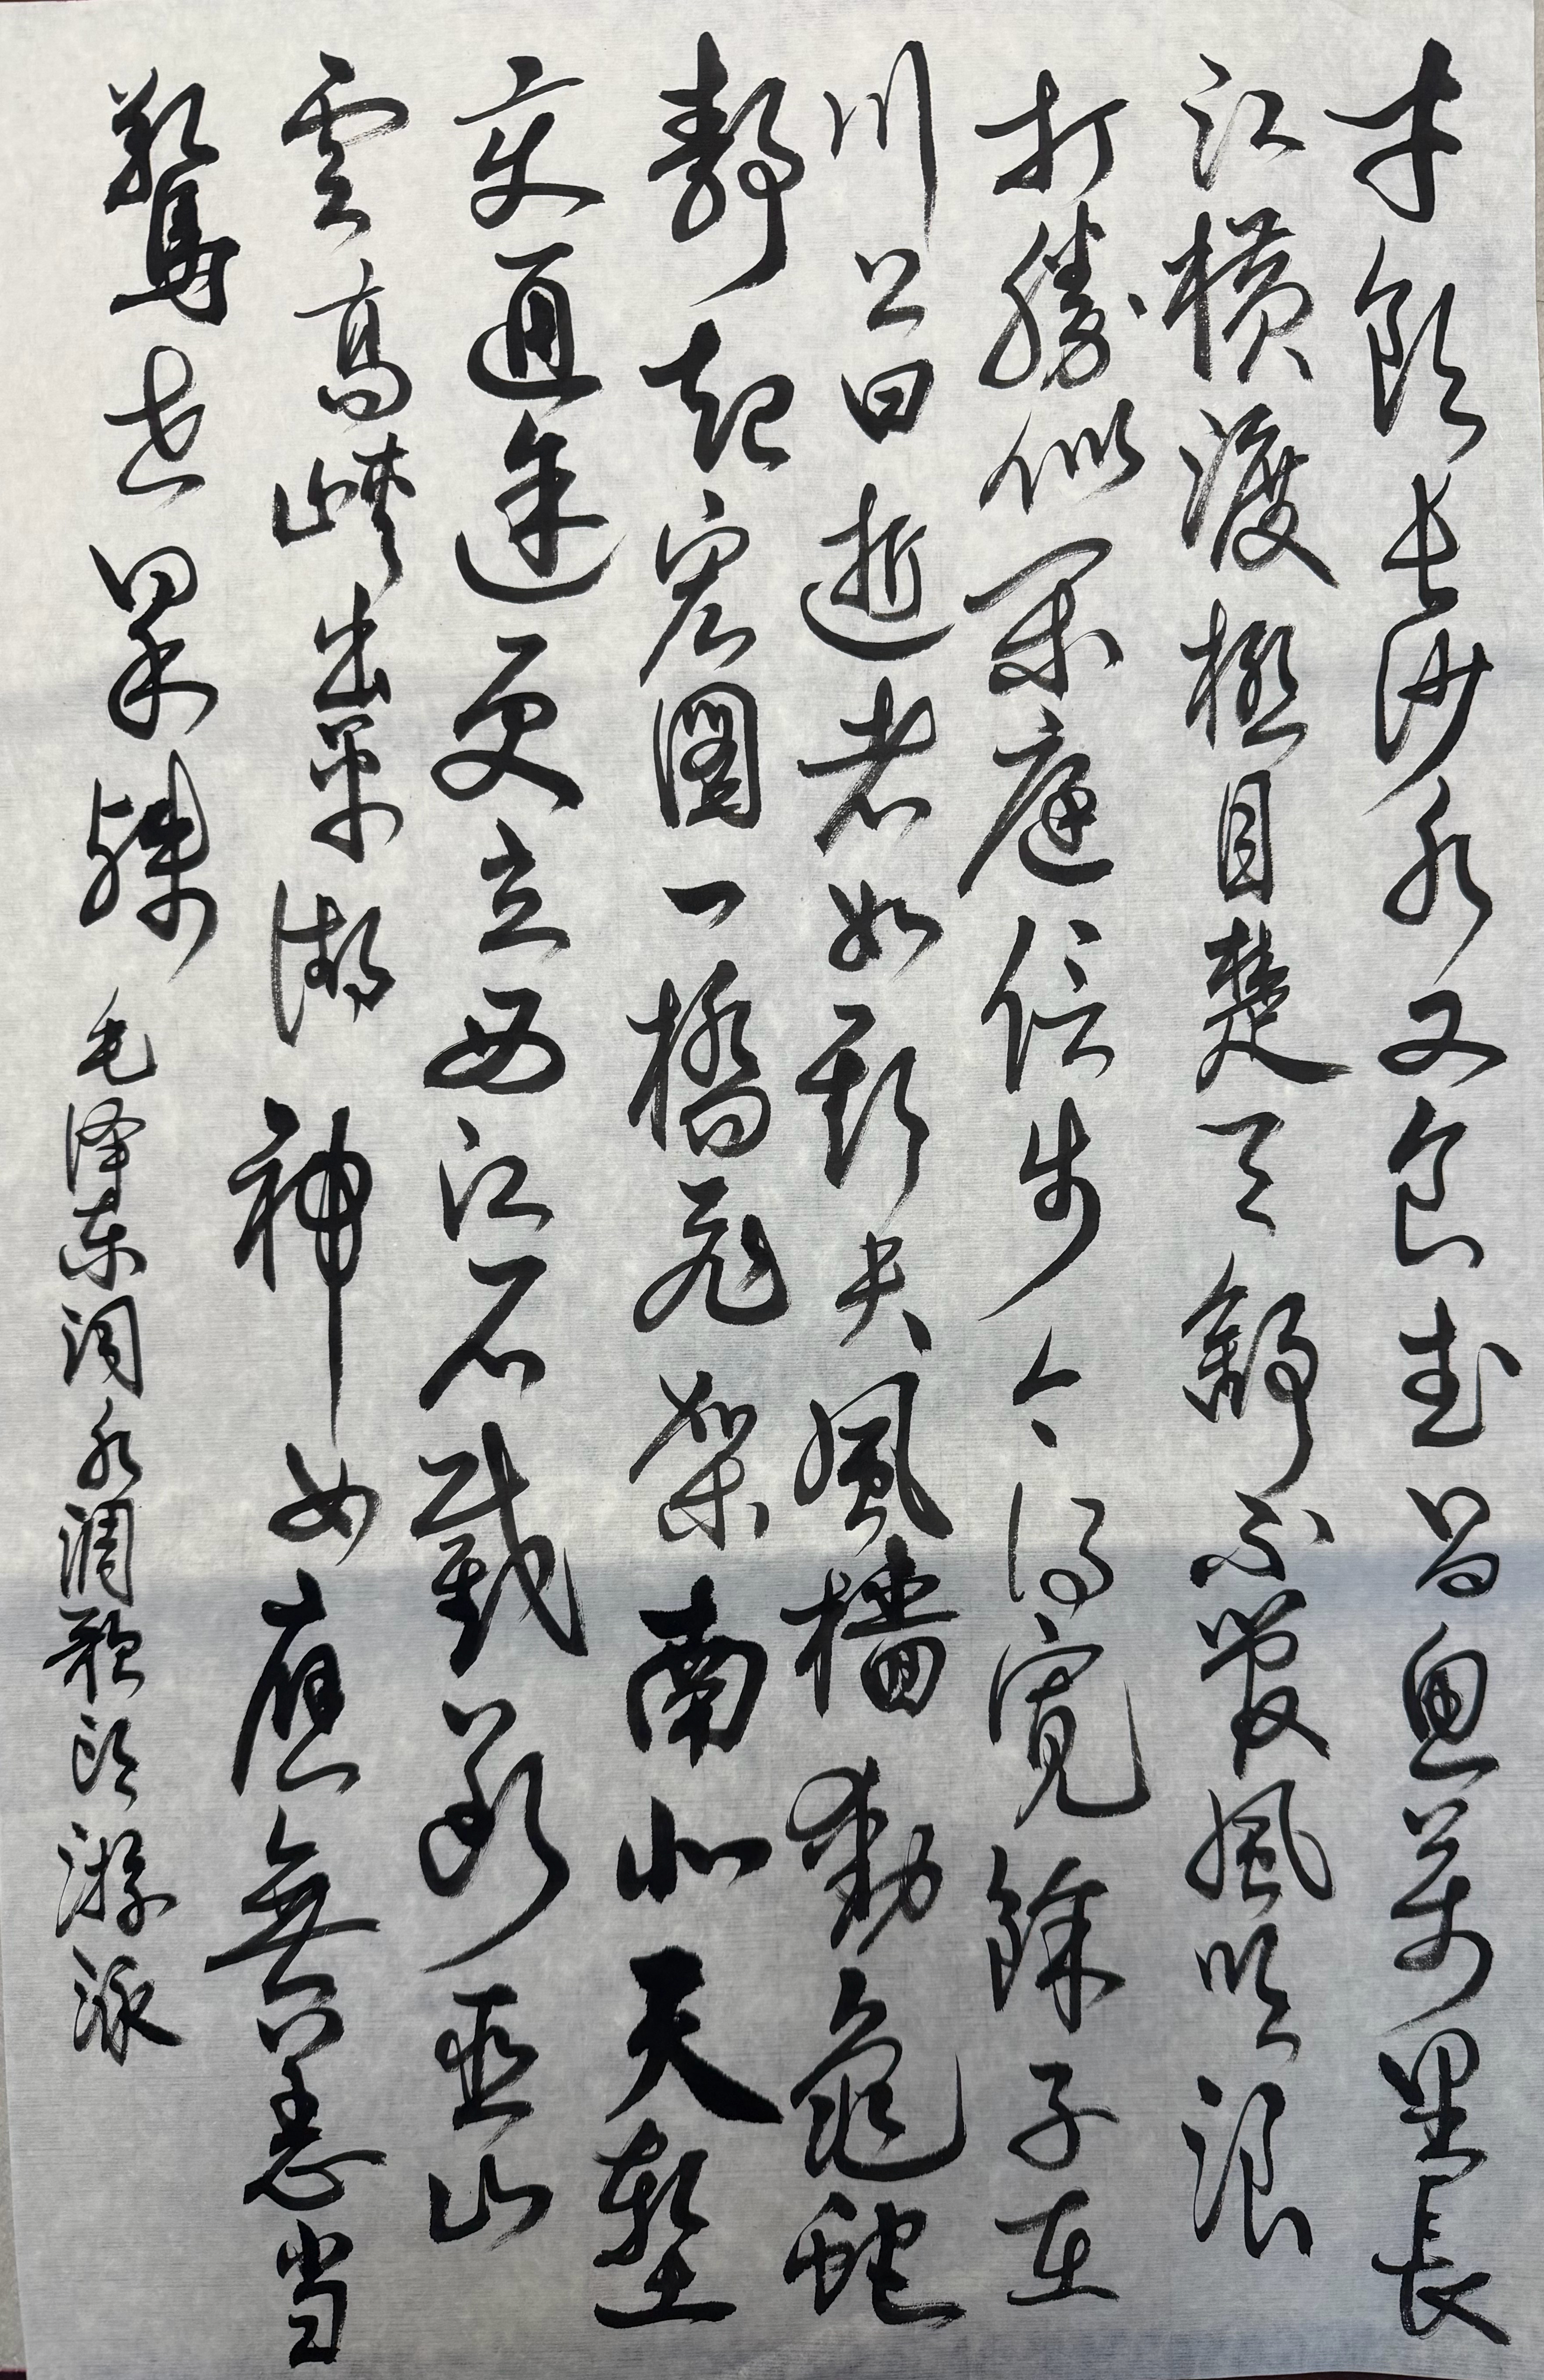 才飲長沙水又食武昌魚萬里長
江橫渡極目楚天舒不管風吹浪
打勝似閑庭信步今得寬餘子在
川上曰逝者如斯夫風檣動龜蛇
靜起宏圖一橋飛架南北天塹
变通途更立西江石截斷巫山
雲高峽出平湖神女應無恙当
驚世界殊 毛泽东词水調歌頭游泳